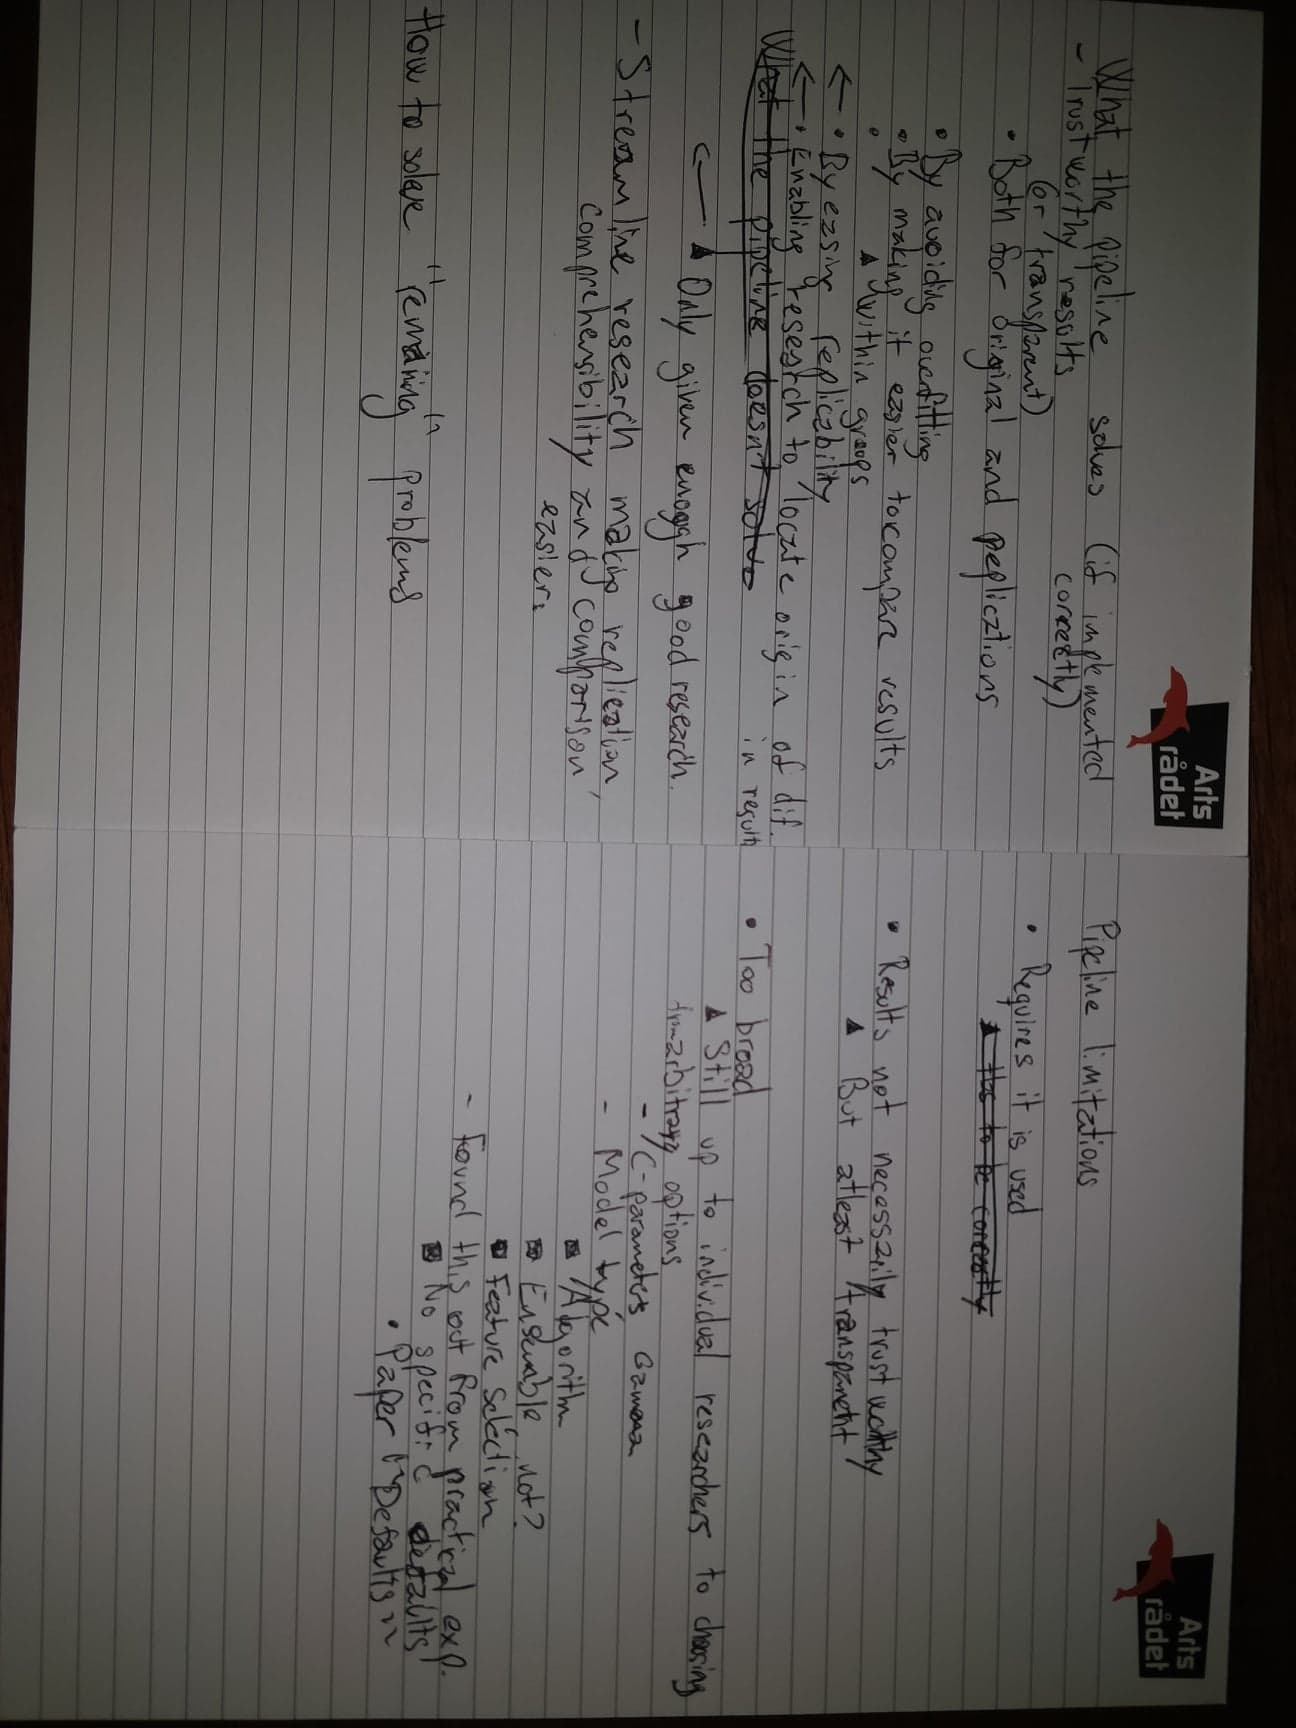 Arts
rådet
What the pipeline solves (if implemented
correctly)
- Trustworthy results
(or transparent)
• Both for original and replications
• By avoiding overfitting
• By making it easier to compare results
• ▲ within groups
← • By easing replicability
← • Enabling research to locate origin of dif.
in result
What the pipeline doesn't solve
← ▲ Only given enough good research.
- Streamline research making replication,
comprehensibility and comparison,
easier.
How to solve "remaining" problems
Arts
rådet
Pipeline limitations
• Requires it is used
▲ Has to be correctly
• Results not necessarily trustworthy
▲ But atleast transparent
• Too broad
▲ Still up to individual researchers to choosing
arbitrary options
- C-parameters Gamma
- Model type
■ Algorithm
■ Ensemble, not?
■ Feature selection
- Found this out from practical exp.
■ No specific defaults!
• Paper "Defaults"